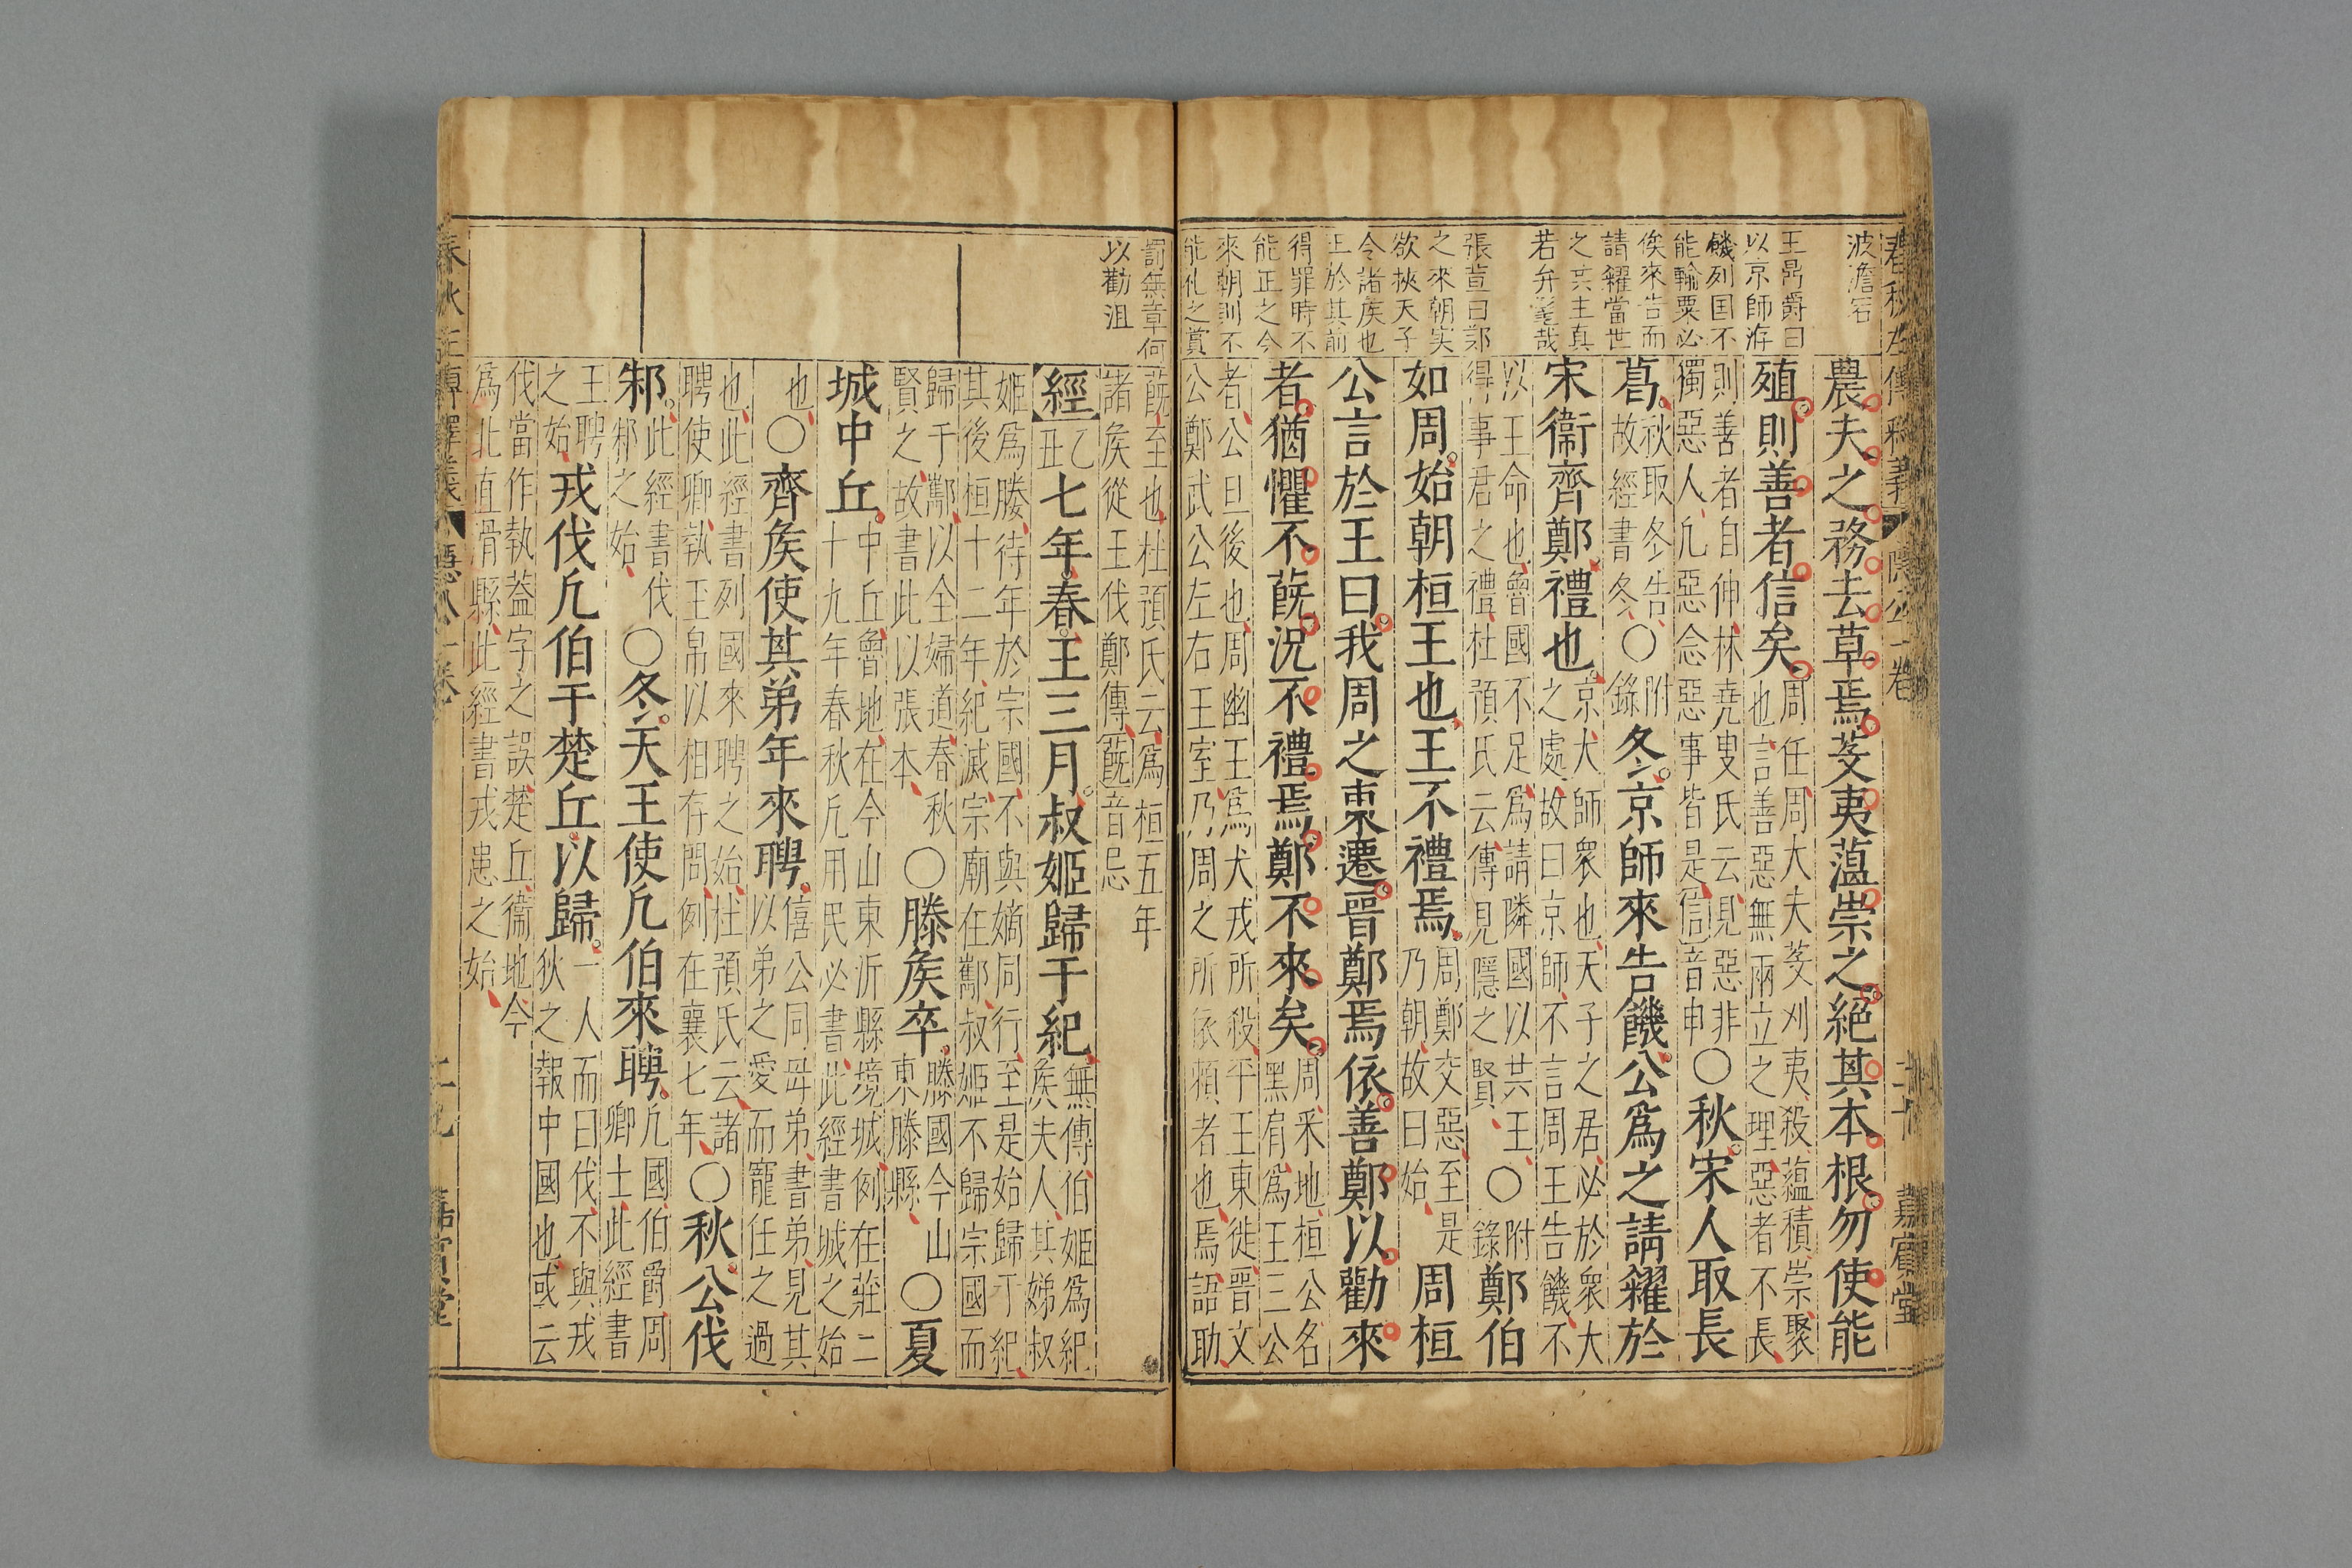 春秋左傳釋義 隱公一卷 嘉賓堂
波澹宕
王鼎爵曰
以京師洊
饑列国不
能輸粟必
俟來告而
請糴當世
之共主真
若弁髦哉
張萱曰鄭
之來朝实
欲挾天子
令諸侯也
王於其前
得罪時不
能正之今
來朝則不
能礼之賞
農夫之務去草焉芟夷薀崇之絕其本根勿使能
殖則善者信矣周任周大夫芟刈夷殺薀積崇聚也言善惡無兩立之理惡者不長
則善者自伸林堯叟氏云見惡非獨惡人凢惡念惡事皆是信音申〇秋宋人取長
葛秋取冬告故經書冬〇附錄冬京師來告饑公爲之請糴於
宋衞齊鄭禮也京大師衆也天子之居必於衆大之處故曰京師不言周王告饑不
以王命也魯國不足爲請隣國以共王得事君之禮杜預氏云傳見隱之賢〇附錄鄭伯
如周始朝桓王也王不禮焉周鄭交惡至是乃朝故曰始周桓
公言於王曰我周之東遷晉鄭焉依善鄭以勸來
者猶懼不蔇況不禮焉鄭不來矣周采地桓公名黑肩爲王三公
者公旦後也周幽王爲犬戎所殺平王東徙晉文公鄭武公左右王室乃周之所依賴者也焉語助
罰無章何
以勸沮
蔇至也杜預氏云爲桓五年諸侯從王伐鄭傳蔇音忌
經乙丑七年春王三月叔姬歸于紀無傳伯姬爲紀侯夫人其娣叔
姬爲媵待年於宗國不與嫡同行至是始歸于紀其後桓十二年紀滅宗廟在酅叔姬不歸宗國而
歸于酅以全婦道春秋賢之故書此以張本〇滕侯卒滕國今山東滕縣〇夏
城中丘中丘魯地在今山東沂縣境城例在莊二十九年春秋凢用民必書此經書城之始
也〇齊侯使其弟年來聘僖公同母弟書弟見其以弟之愛而寵任之過
也此經書列國來聘之始杜預氏云諸聘使卿執玉帛以相存問例在襄七年〇秋公伐
邾此經書伐邾之始〇冬天王使凢伯來聘凢國伯爵周卿士此經書
王聘之始戎伐凢伯于楚丘以歸一人而曰伐不與戎狄之報中國也或云
伐當作執蓋字之誤楚丘衞地今爲北直滑縣此經書戎患之始